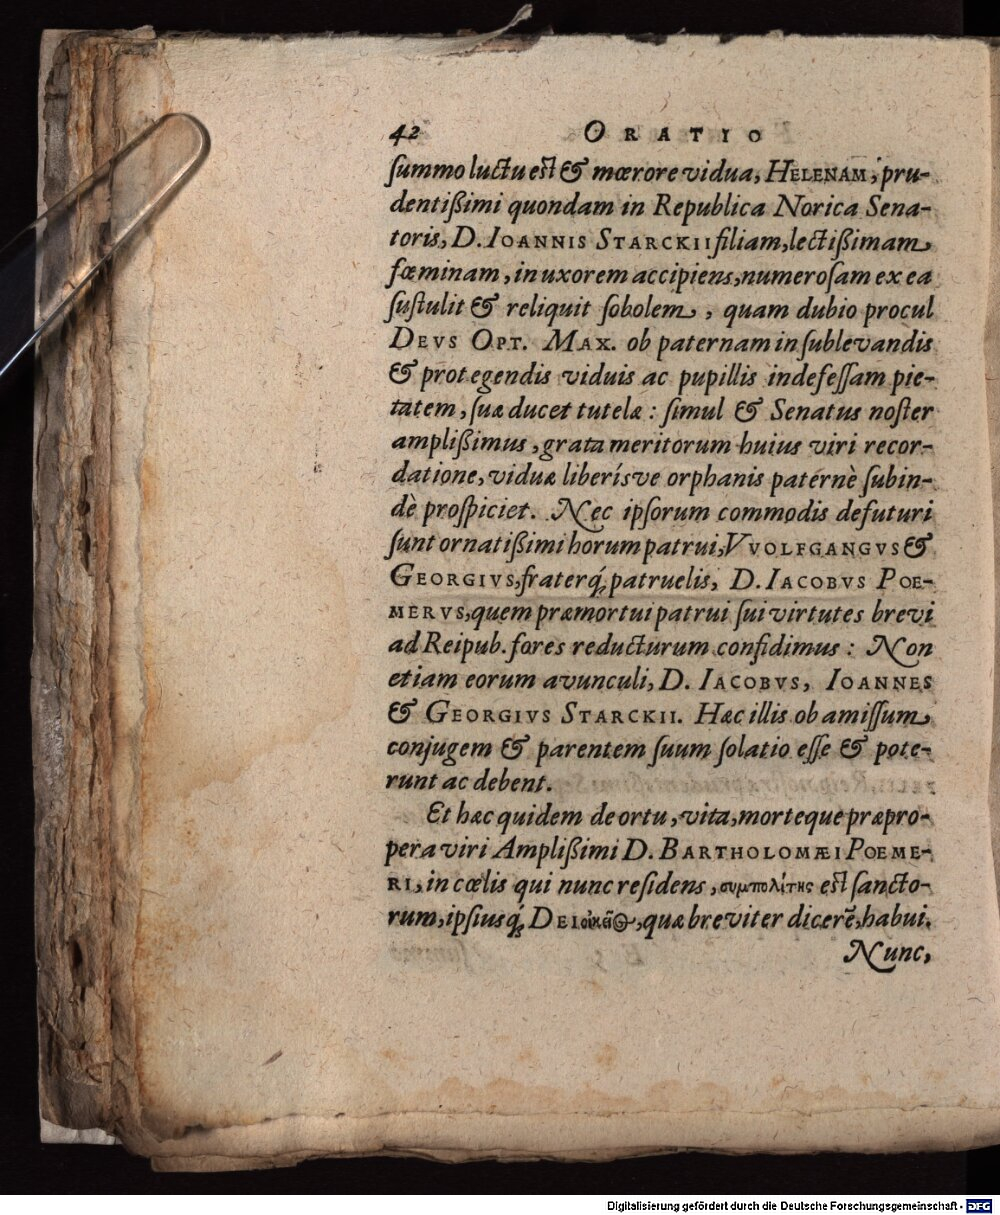 42 ORATIO
summo luctu est & mœrore vidua, HELENAM, pru-
dentißimi quondam in Republica Norica Sena-
toris, D. IOANNIS STARCKII filiam, lectißimam
fœminam, in uxorem accipiens, numerosam ex ea
sustulit & reliquit sobolem, quam dubio procul
DEVS OPT. MAX. ob paternam in sublevandis
& protegendis viduis ac pupillis indefessam pie-
tatem, suæ ducet tutelæ: simul & Senatus noster
amplißimus, grata meritorum huius viri recor-
datione, viduæ liberísve orphanis paternè subin-
dè prospiciet. Nec ipsorum commodis defuturi
sunt ornatißimi horum patrui, VVOLFGANGVS &
GEORGIVS, fraterq́; patruelis, D. IACOBVS POE-
MERVS, quem præmortui patrui sui virtutes brevi
ad Reipub. fores reducturum confidimus: Non
etiam eorum avunculi, D. IACOBVS, IOANNES
& GEORGIVS STARCKII. Hæc illis ob amissum
conjugem & parentem suum solatio esse & pote-
runt ac debent.
Et hæc quidem de ortu, vita, morteque præpro-
pera viri Amplißimi D. BARTHOLOMÆI POEME-
RI, in cœlis qui nunc residens, συμπολίτης est sancto-
rum, ipsiusq́; DEI οἰκεῖος, quæ breviter dicerẽ, habui.
Nunc,
Digitalisierung gefördert durch die Deutsche Forschungsgemeinschaft - DFG